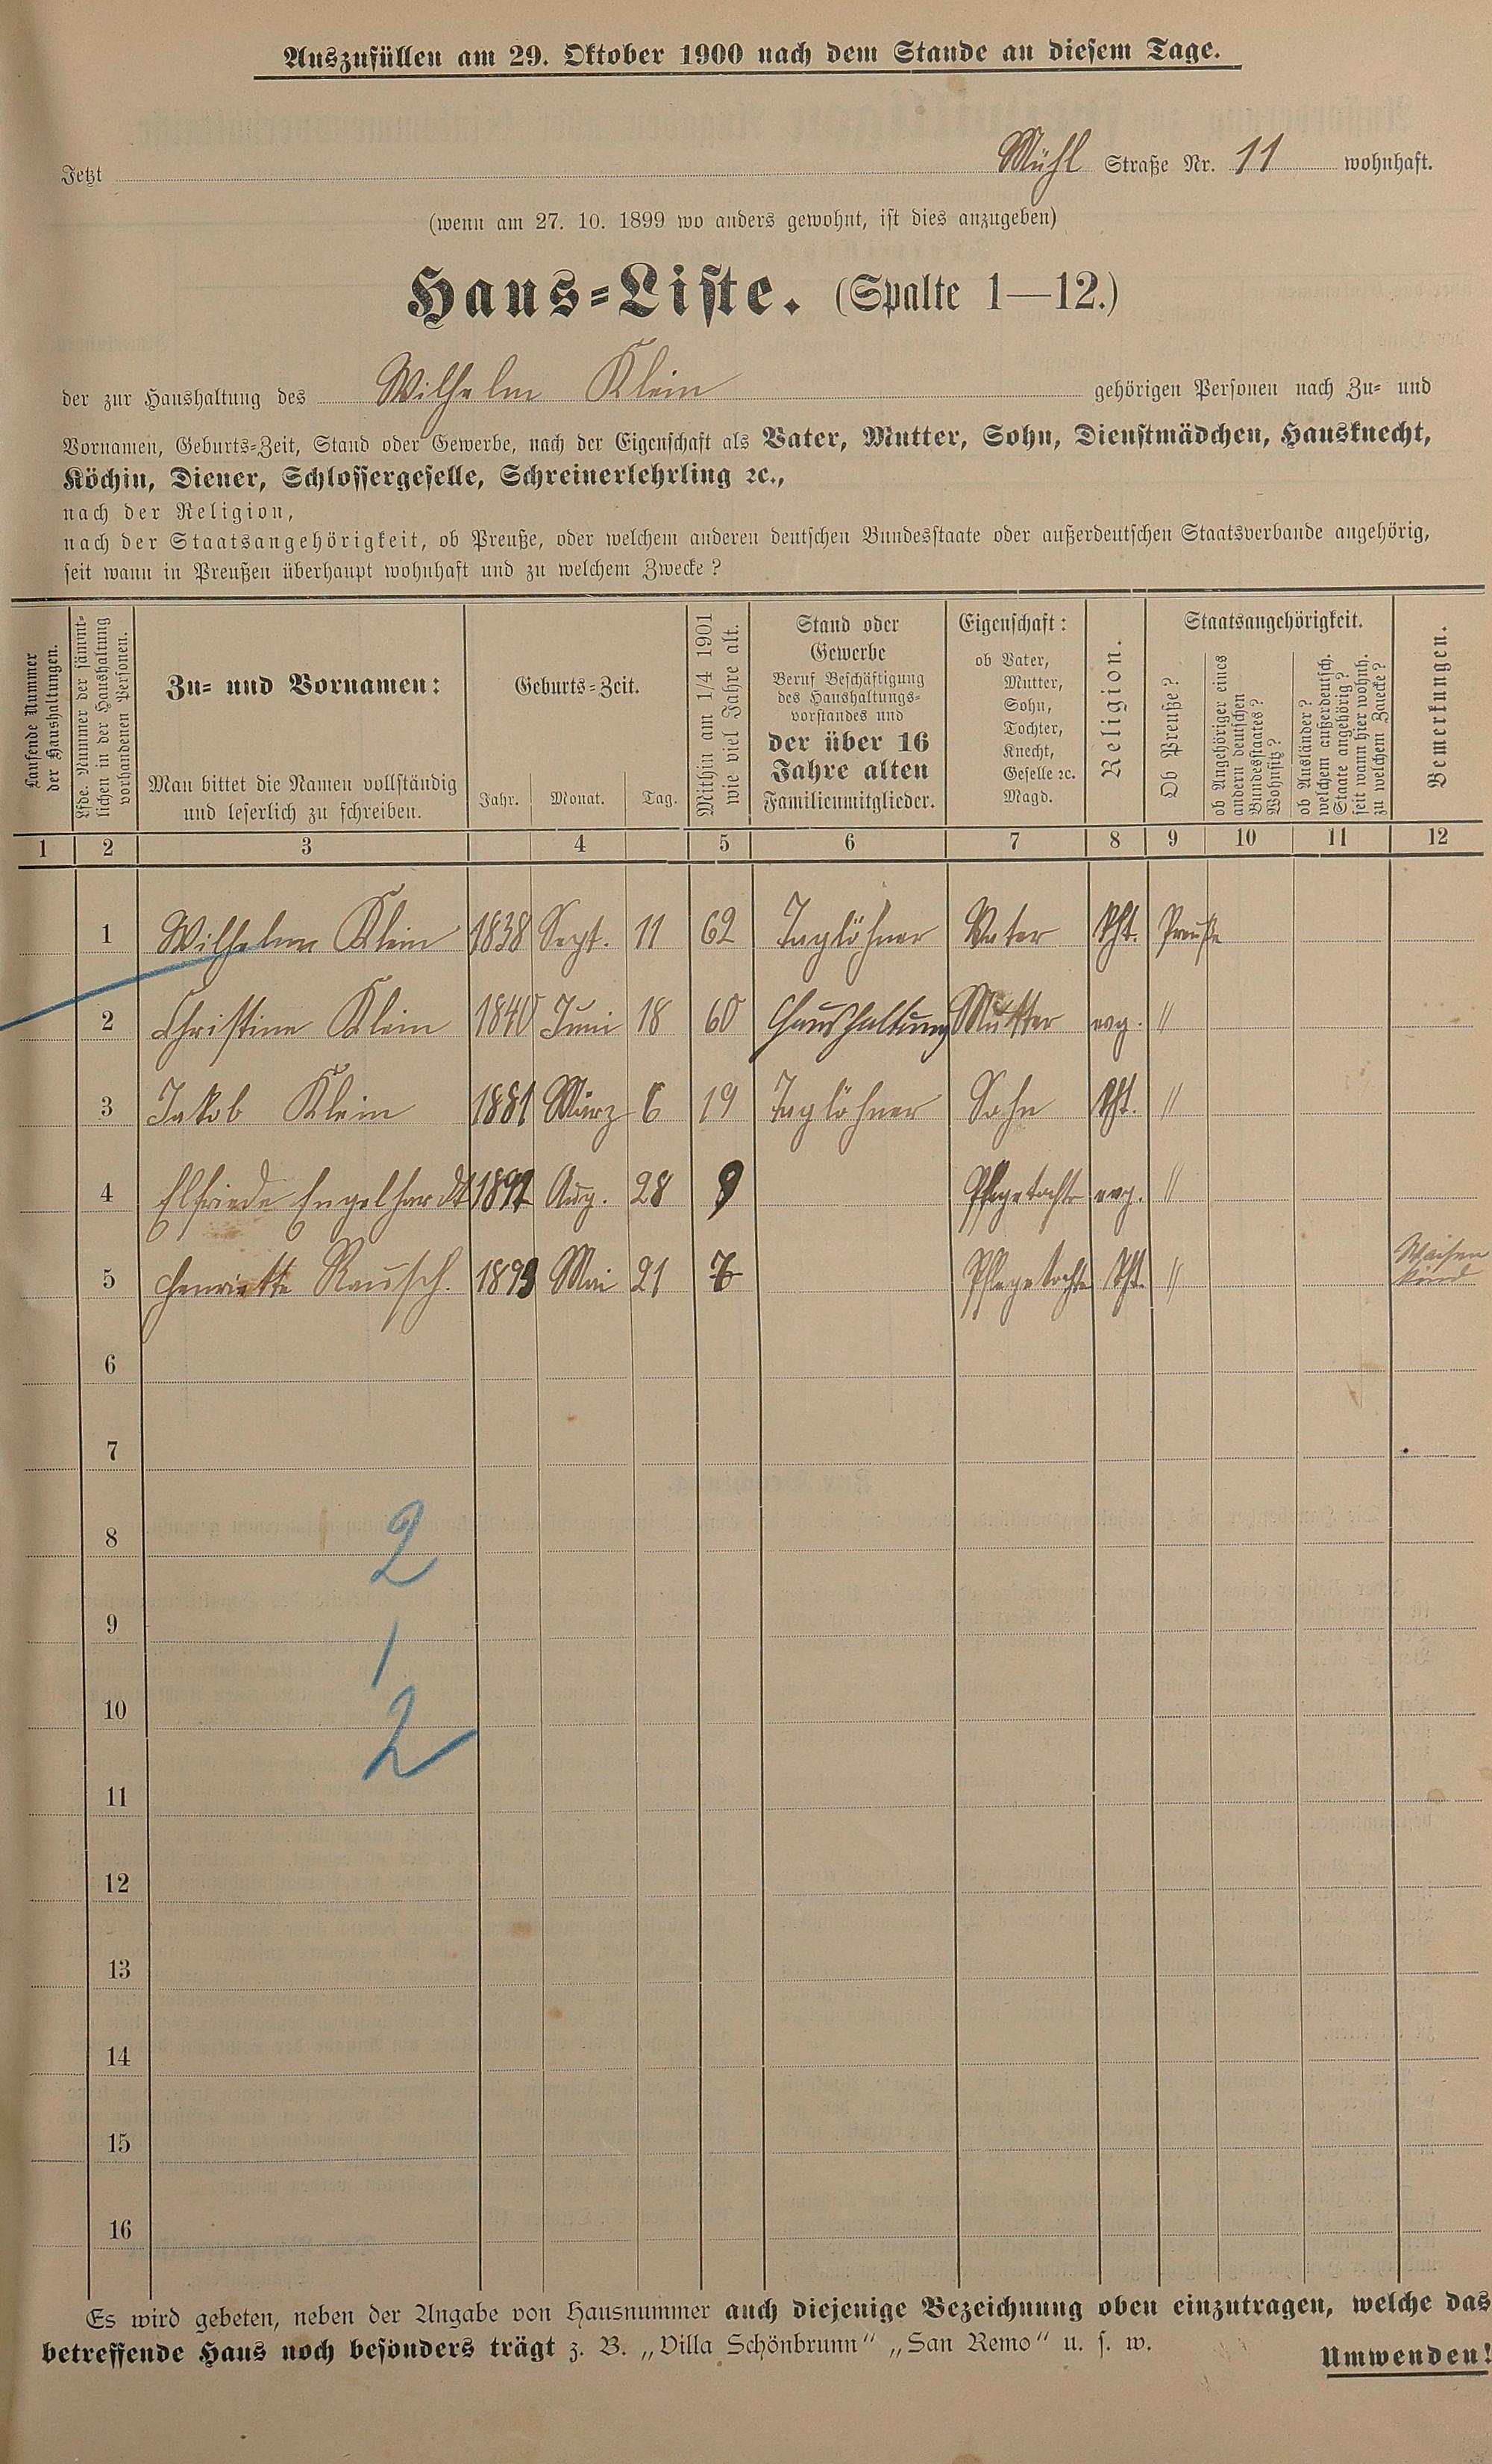 Auszufüllen am 29. Oktober 1900 nach dem Stande an diesem Tage.
Jetzt Mühl Straße Nr. 11 wohnhaft.
(wenn am 27. 10. 1899 wo anders gewohnt, ist dies anzugeben)
Haus=Liste. (Spalte 1—12.)
der zur Haushaltung des Wilhelm Klein gehörigen Personen nach Zu= und
Vornamen, Geburts=Zeit, Stand oder Gewerbe, nach der Eigenschaft als Vater, Mutter, Sohn, Dienstmädchen, Hausknecht,
Köchin, Diener, Schlossergeselle, Schreinerlehrling ꝛc.,
nach der Religion,
nach der Staatsangehörigkeit, ob Preuße, oder welchem anderen deutschen Bundesstaate oder außerdeutschen Staatsverbande angehörig,
seit wann in Preußen überhaupt wohnhaft und zu welchem Zwecke?
Laufende Nummer
der Haushaltungen.
Lfde. Nummer der sämmt-
lichen in der Haushaltung
vorhandenen Personen.
Zu= und Vornamen:
Man bittet die Namen vollständig
und leserlich zu schreiben.
Geburts=Zeit.
Jahr. Monat. Tag.
Mithin am 1/4 1901
wie viel Jahre alt.
Stand oder
Gewerbe
Beruf Beschäftigung
des Haushaltungs-
vorstandes und
der über 16
Jahre alten
Familienmitglieder.
Eigenschaft:
ob Vater,
Mutter,
Sohn,
Tochter,
Knecht,
Geselle ꝛc.
Magd.
Religion.
Staatsangehörigkeit.
Ob Preuße?
ob Angehöriger eines
andern deutschen
Bundesstaates?
Wohnsitz?
ob Ausländer?
welchem außerdeutsch.
Staate angehörig?
seit wann hier wohnh.
zu welchem Zwecke?
Bemerkungen.
1 2 3 4 5 6 7 8 9 10 11 12
1 Wilhelm Klein 1838 Sept. 11 62 Taglöhner Vater Kth. Preuße
2 Christine Klein 1840 Juni 18 60 Haushaltung Mutter evg. "
3 Jakob Klein 1881 März 6 19 Taglöhner Sohn Kth. "
4 Elfriede Engelhardt 1891 Aug. 28 9 Pflegetochter evg. "
5 Henriette Rausch. 1893 Mai 21 7 Pflegetochter Kth. " Waisen
kind
6
7
8 2
9
1
10
2
11
12
13
14
15
16
Es wird gebeten, neben der Angabe von Hausnummer auch diejenige Bezeichnung oben einzutragen, welche das
betreffende Haus noch besonders trägt z. B. „Villa Schönbrunn“ „San Remo“ u. s. w.
Umwenden!